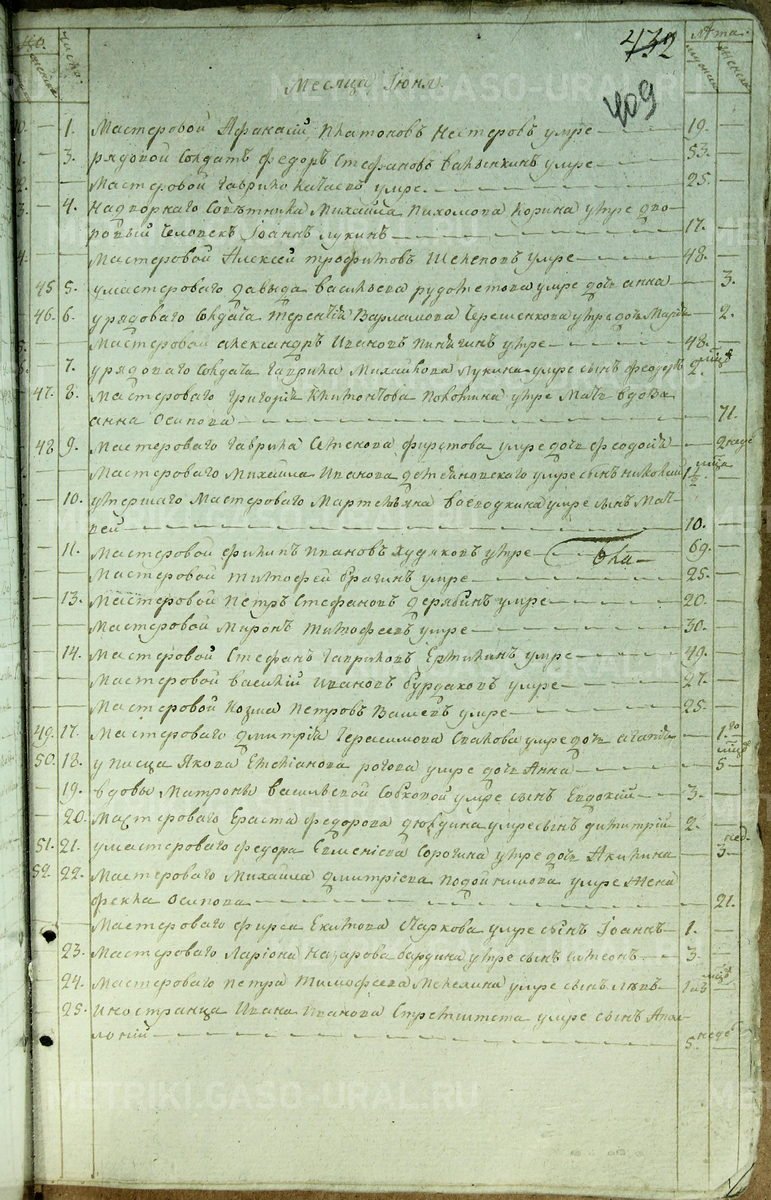 432
409
число.
Лѣта.
Месяца Іюня.
1. Мастеровой Афанасій Платоновъ Нестеровъ умре 19.
3. рядовой Солдатъ Федоръ Стефановъ умре 53.
Мастеровой Гаврило умре 25.
4. Надворнаго Совѣтника Михайла Пихомова Корина умре дво-
ровый Человекъ Іоаннъ Лукинъ 17.
Мастеровой Алексей Трофимовъ умре 48.
45 5. умастероваго Давыда Васильева рудометова умре дочь анна 3.
46. 6. урядоваго Солдата Терентія Варламова Черешенкова умре дочь Марія 2.
Мастеровой Александръ Ивановъ Пинягинъ умре 48.
7. урядоваго Солдата Гаврила Михайлова Лукина умре сынъ Феодоръ 2. мцѣ
47. 8. Мастероваго Григорія умре мать вдова
анна Осипова 71.
48 9. Мастероваго Гаврила Семенова фирстова умре дочь Феодосія 2 недѣ
Мастероваго Михайла Иванова умре сынъ николай 1 1/2 мцѣа
10. умершаго Мастероваго Мартемьяна воеводкина умре сынъ Мат-
вей 10.
11. Мастеровой филипъ Ивановъ Худяковъ умре 69.
Мастеровой тимофей брагинъ умре 25.
13. Мастеровой Петръ Стефановъ дерябинъ умре 20.
Мастеровой Миронъ Тимофеевъ умре 30.
14. Мастеровой Стефанъ Гавриловъ Ермилинъ умре 49.
Мастеровой василій Ивановъ бурдаковъ умре 27.
Мастеровой Козма Петровъ умре 25.
49. 17. Мастероваго Дмитрія Герасимова умре дочь агапія 1. го
50. 18. у писца Якова Емельянова рогова умре дочь Анна 5 мцѣ
19. вдовы Матроны васильевой умре сынъ Евдокій 3.
20. Мастероваго Ераста Федорова умре сынъ димитрій 2.
51. 21. умастероваго Федора Евменіева Сорогина умре дочь Акилина 3 нед.
52. 22. Мастероваго Михайла Дмитріева Подойникова умре жена
фекла Осипова 21.
Мастероваго фирса Екимова Чаркова умре сынъ Іоаннъ 1.
23. Мастероваго Ларіона Назарова бардина умре сынъ симеонъ 3
24. Мастероваго Петра Тимофеева умре сынъ левъ мцѣ
25. Иностранца Ивана Иванова умре сынъ Апол-
лоній 5 недѣ
METRIKI.GASO-URAL.RU